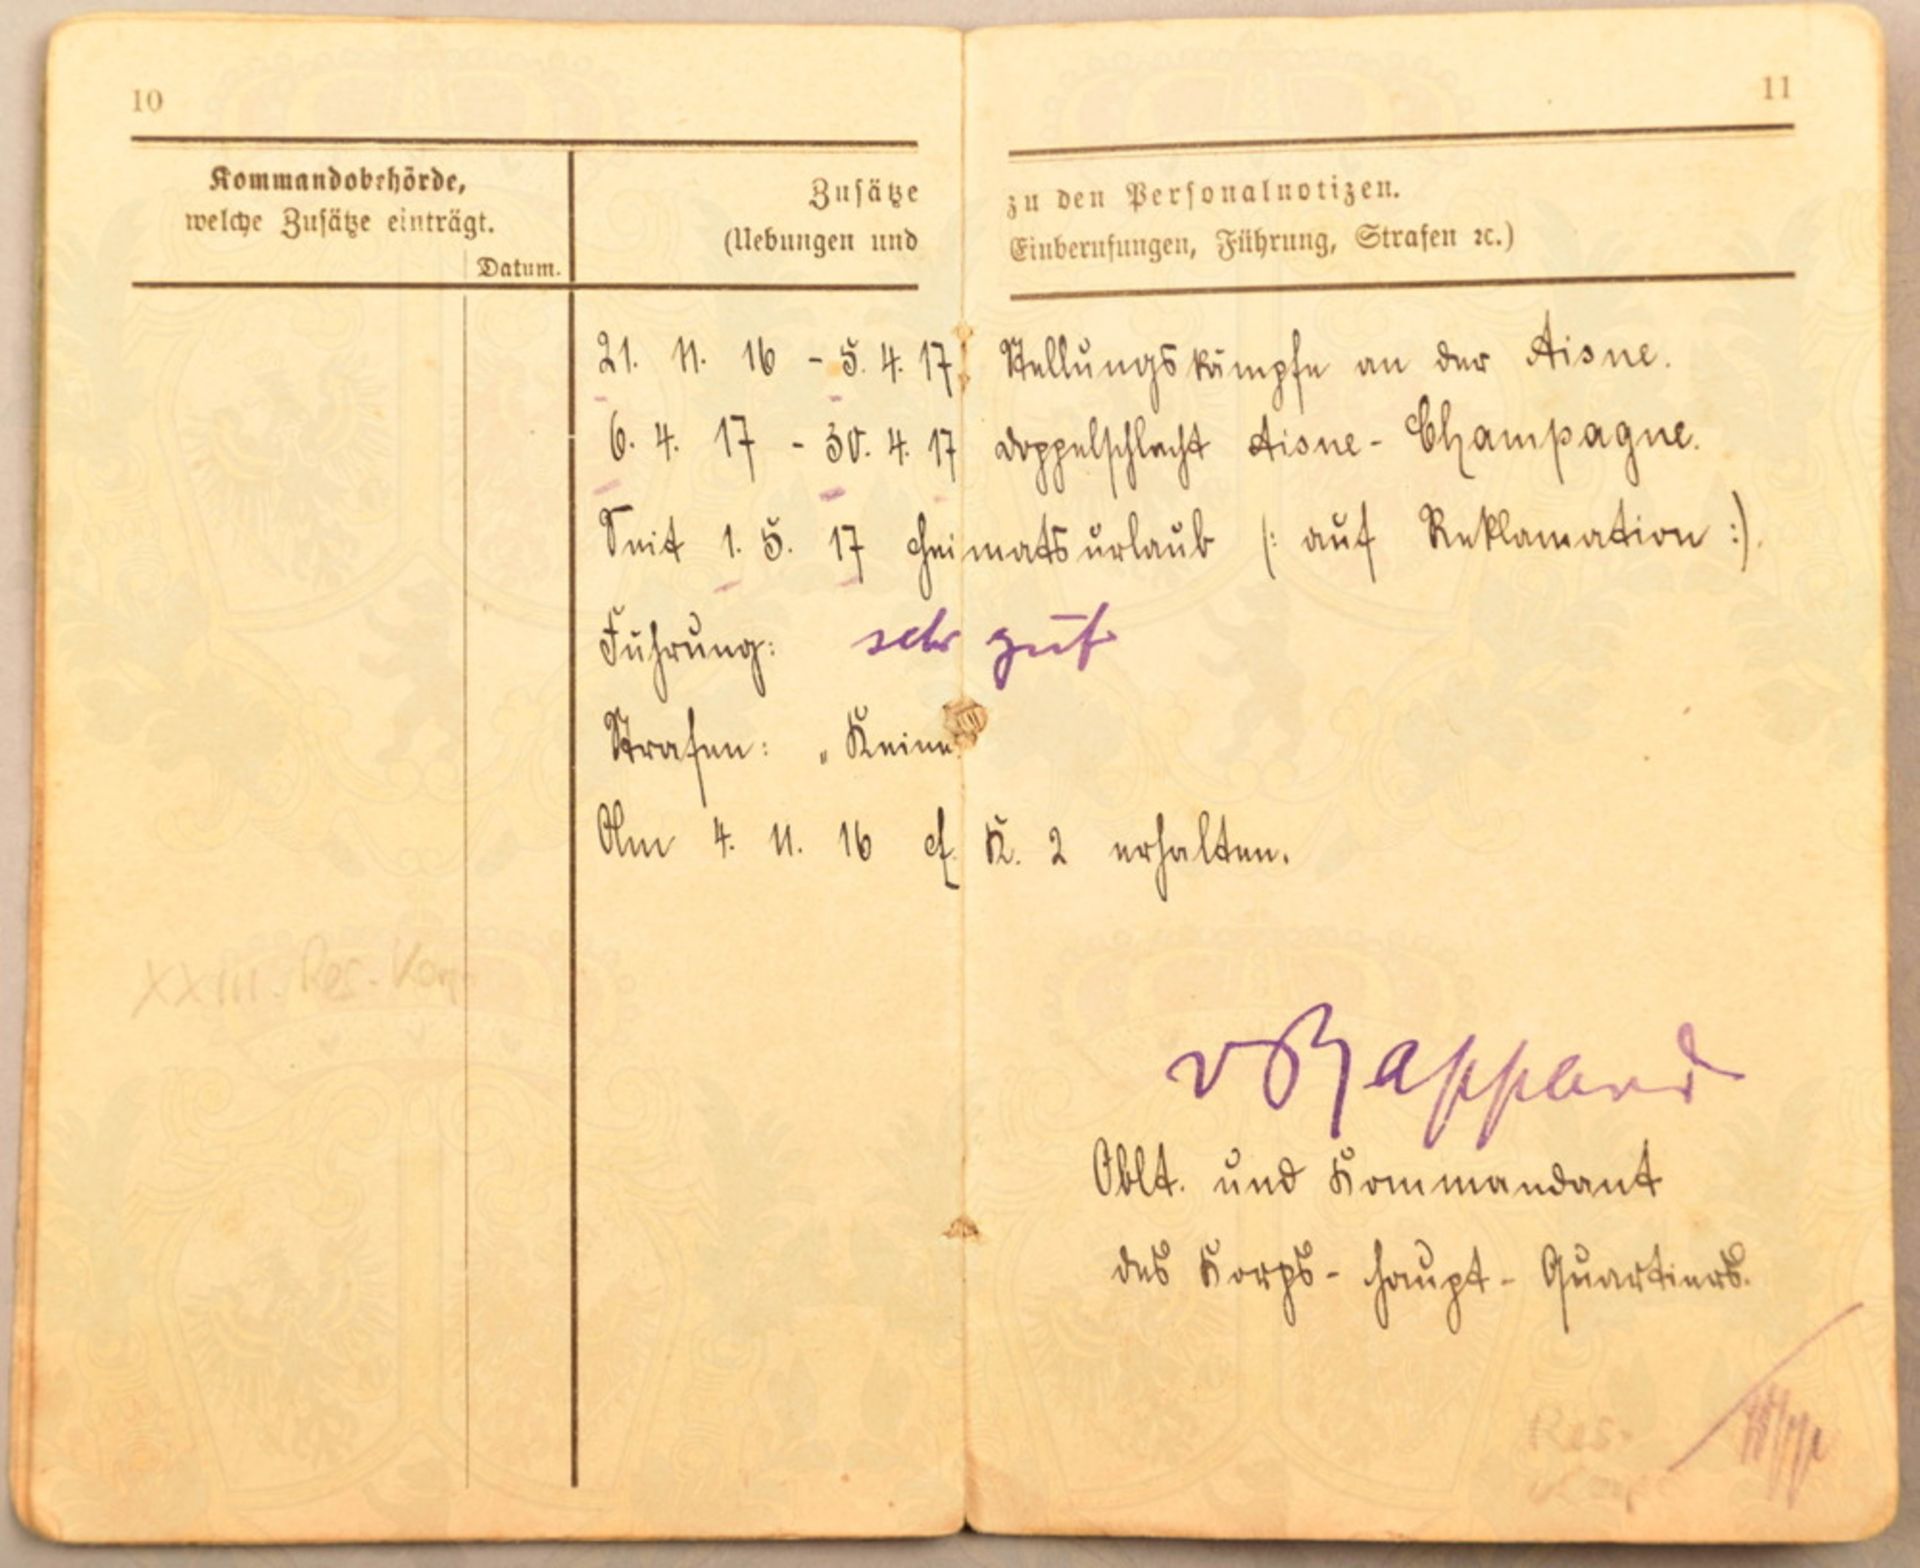 10
11
Kommandobehörde,
welche Zusätze einträgt.
Datum.
Zusätze
(Uebungen und
zu den Personalnotizen.
Einberufungen, Führung, Strafen ꝛc.)
21. 11. 16 - 5. 4. 17 Stellungskämpfe an der Aisne.
6. 4. 17 - 30. 4. 17 Doppelschlacht Aisne-Champagne.
Seit 1. 5. 17 Heimatsurlaub (: auf Reklamation :).
Führung: sehr gut
Strafen: „Keine
Am 4. 11. 16 E. K. 2 erhalten.
XXIII. Res. Korps
v Rappard
Oblt. und Kommandant
des Korps-Haupt-Quartiers.
Res.